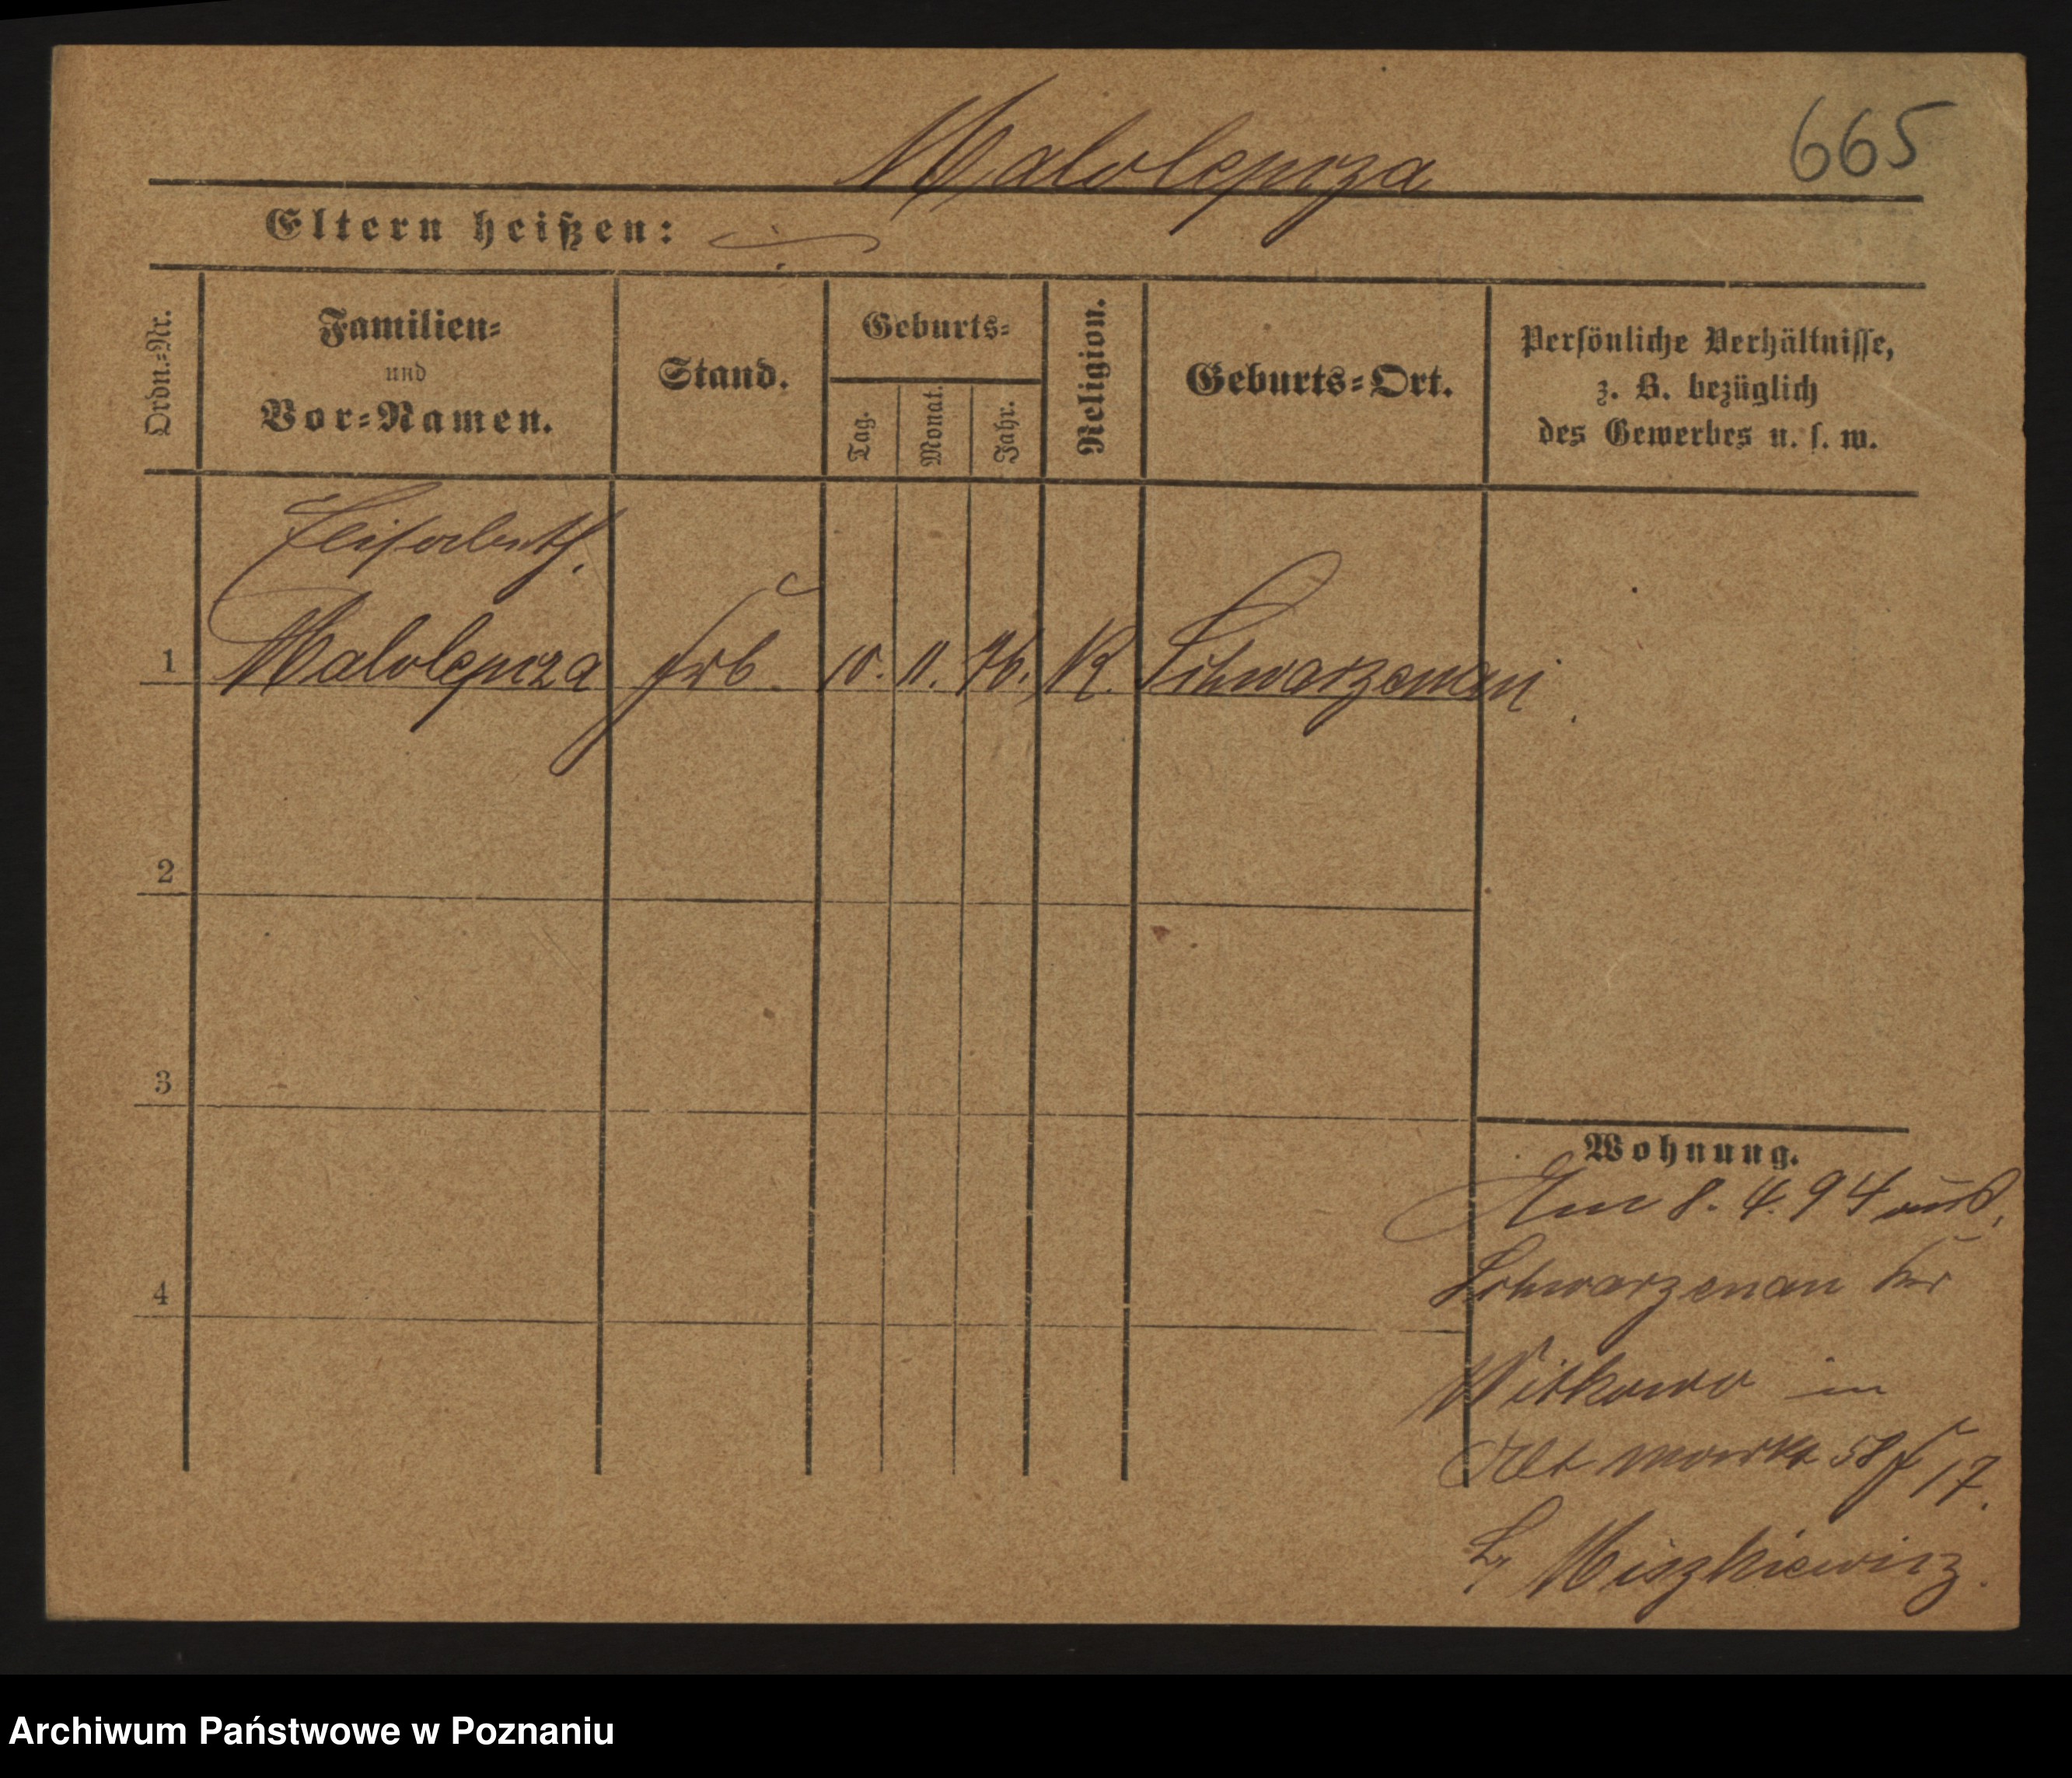 Malolepsza
665
Eltern heißen:
Ordn.-Nr.
Familien-
und
Vor-Namen.
Stand.
Geburts-
Tag.
Monat.
Jahr.
Religion.
Geburts-Ort.
Persönliche Verhältnisse,
z. B. bezüglich
des Gewerbes u. s. w.
Elisabeth
1 Malolepsza 10. 11. 76. K. Schwarzenau
2
3
4
Wohnung.
Am 8. 4. 94 aus
Schwarzenau Kr
Witkowo in
Alt markt 58 17.
b/ Miszkiewicz.
Archiwum Państwowe w Poznaniu